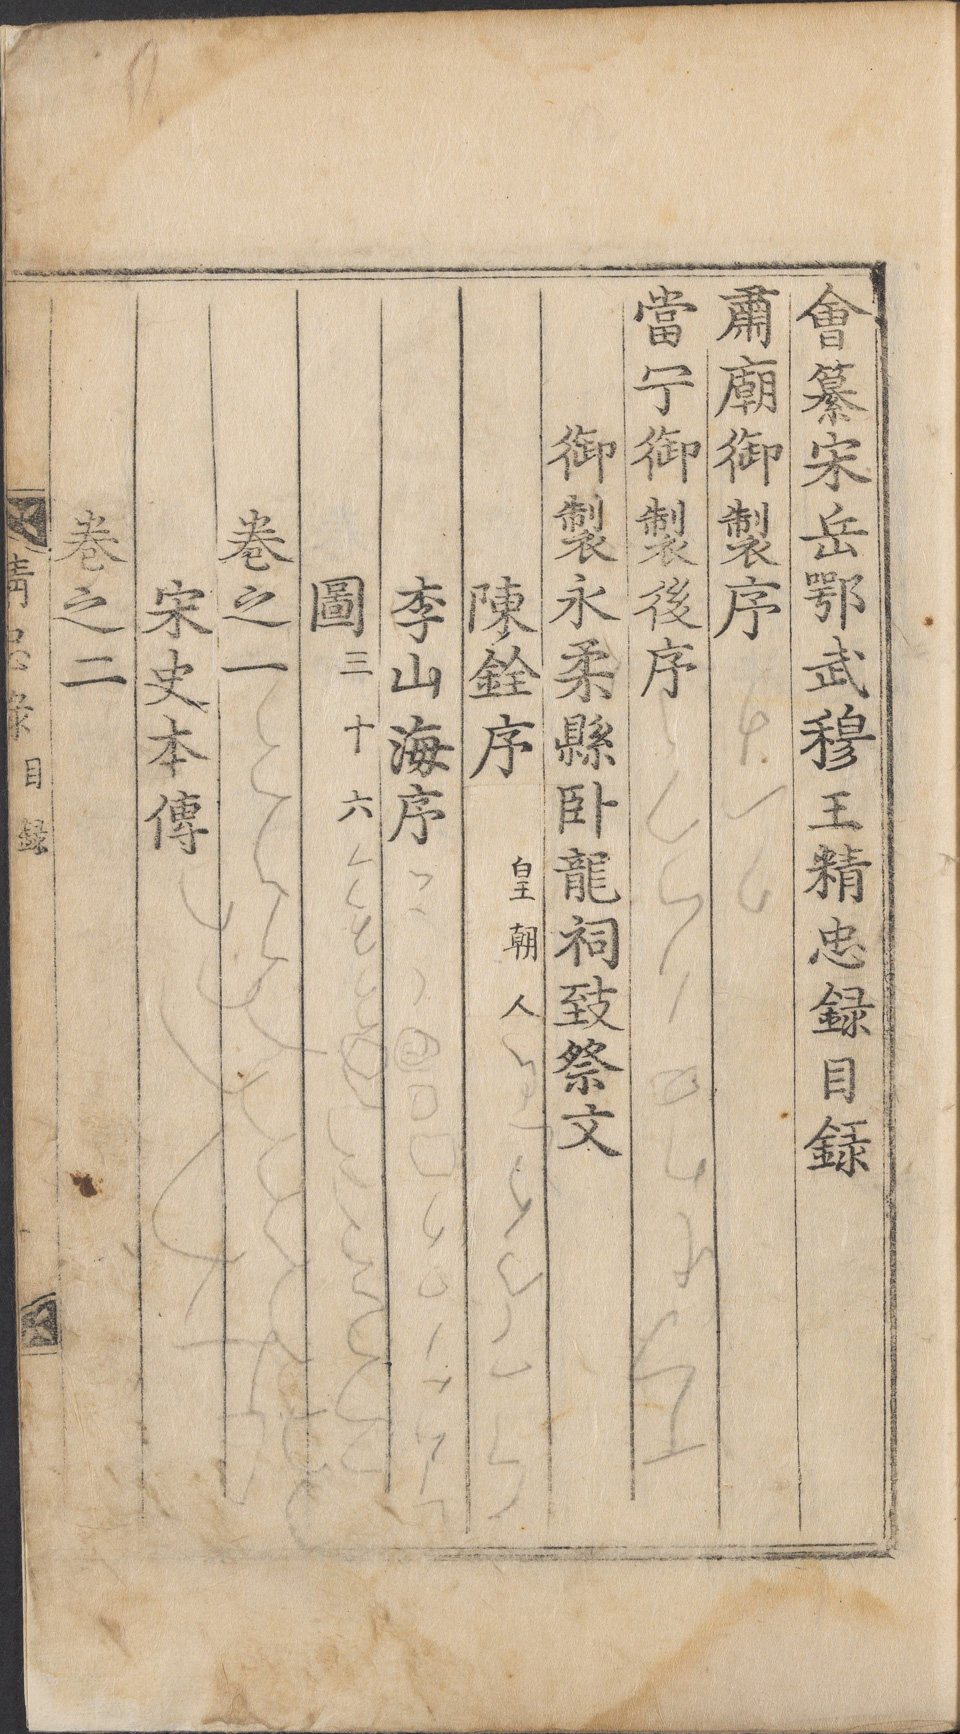 會纂宋岳鄂武穆王精忠録目録
肅廟御製序
當宁御製後序
御製永柔縣卧龍祠致祭文
陳銓序 皇朝人
李山海序
圖三十六
卷之一
宋史本傳
卷之二
精忠録 目録